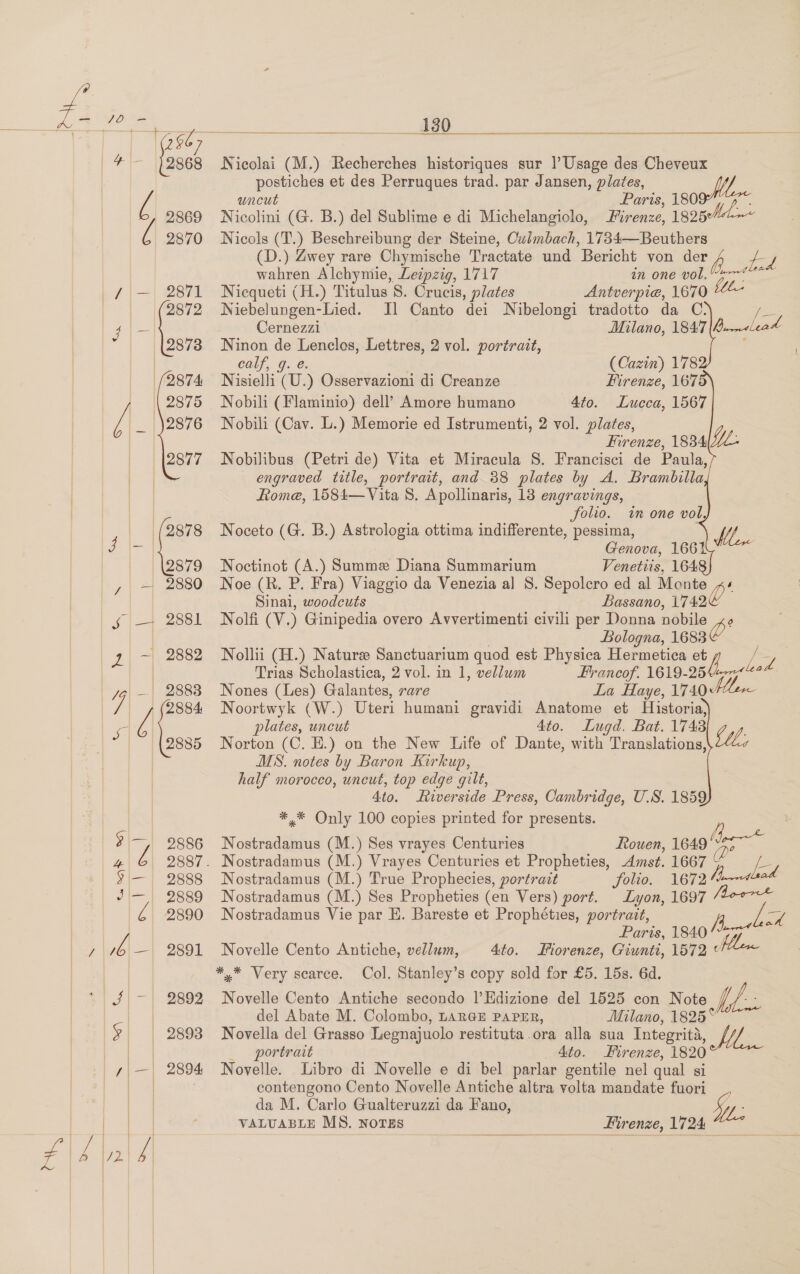 £ - 10 -
130
2867
4 - 2868 Nicolai (M.) Recherches historiques sur l'Usage des Cheveux
postiches et des Perruques trad. par Jansen, plates,
uncut Paris, 1809 Allen
6 2869 Nicolini (G. B.) del Sublime e di Michelangiolo, Firenze, 1825
6 2870 Nicols (T.) Beschreibung der Steine, Culmbach, 1734—Beuthers
(D.) Zwey rare Chymische Tractate und Bericht von der
wahren Alchymie, Leipzig, 1717 in one vol. Bumstead
1 - 2871 Nicqueti (H.) Titulus S. Crucis, plates Antverpiæ, 1670
2872 Niebelungen-Lied. Il Canto dei Nibelongi tradotto da C.
Cernezzi Milano, 1847 Bumstead
2873 Ninon de Lenclos, Lettres, 2 vol. portrait,
calf, g. e. (Cazin) 1782
2874 Nisielli (U.) Osservazioni di Creanze Firenze, 1675
2875 Nobili (Flaminio) dell' Amore humano 4to. Lucca, 1567
6 - 2876 Nobili (Cav. L.) Memorie ed Istrumenti, 2 vol. plates,
Firenze, 1834
2877 Nobilibus (Petri de) Vita et Miracula S. Francisci de Paula,
engraved title, portrait, and 38 plates by A. Brambilla,
Romæ, 1584—Vita S. Apollinaris, 13 engravings,
folio. in one vol.
3 - 2878 Noceto (G. B.) Astrologia ottima indifferente, pessima,
Genova, 1661 Allen
2879 Noctinot (A.) Summæ Diana Summarium Venetiis, 1648
1 - 2880 Noe (R. P. Fra) Viaggio da Venezia al S. Sepolcro ed al Monte
Sinai, woodcuts Bassano, 1742
5 - 2881 Nolfi (V.) Ginipedia overo Avvertimenti civili per Donna nobile
Bologna, 1683
2 - 2882 Nollii (H.) Naturæ Sanctuarium quod est Physica Hermetica et
Trias Scholastica, 2 vol. in 1, vellum Francof. 1619-25 Bumstead
19 - 2883 Nones (Les) Galantes, rare La Haye, 1740 Allen
2884 Noortwyk (W.) Uteri humani gravidi Anatome et Historia,
plates, uncut 4to. Lugd. Bat. 1743
2885 Norton (C. E.) on the New Life of Dante, with Translations,
MS. notes by Baron Kirkup,
half morocco, uncut, top edge gilt,
4to. Riverside Press, Cambridge, U.S. 1859
*** Only 100 copies printed for presents.
2886 Nostradamus (M.) Ses vrayes Centuries Rouen, 1649
4 6 2887. Nostradamus (M.) Vrayes Centuries et Propheties, Amst. 1667
2888 Nostradamus (M.) True Prophecies, portrait folio. 1672 Bumstead
3 - 2889 Nostradamus (M.) Ses Propheties (en Vers) port. Lyon, 1697
6 2890 Nostradamus Vie par E. Bareste et Prophéties, portrait,
Paris, 1840 Bumstead
1 16 - 2891 Novelle Cento Antiche, vellum, 4to. Fiorenze, Giunti, 1572 Allen
*** Very scarce. Col. Stanley's copy sold for £5. 15s. 6d.
2892 Novelle Cento Antiche secondo l'Edizione del 1525 con Note
del Abate M. Colombo, LARGE PAPER, Milano, 1825
2893 Novella del Grasso Legnajuolo restituta ora alla sua Integrità,
portrait 4to. Firenze, 1820 Allen
1 - 2894 Novelle. Libro di Novelle e di bel parlar gentile nel qual si
contengono Cento Novelle Antiche altra volta mandate fuori
da M. Carlo Gualteruzzi da Fano,
VALUABLE MS. NOTES Firenze, 1724